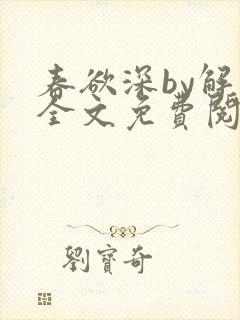 春欲深by解
全文免費閱
劉寶奇